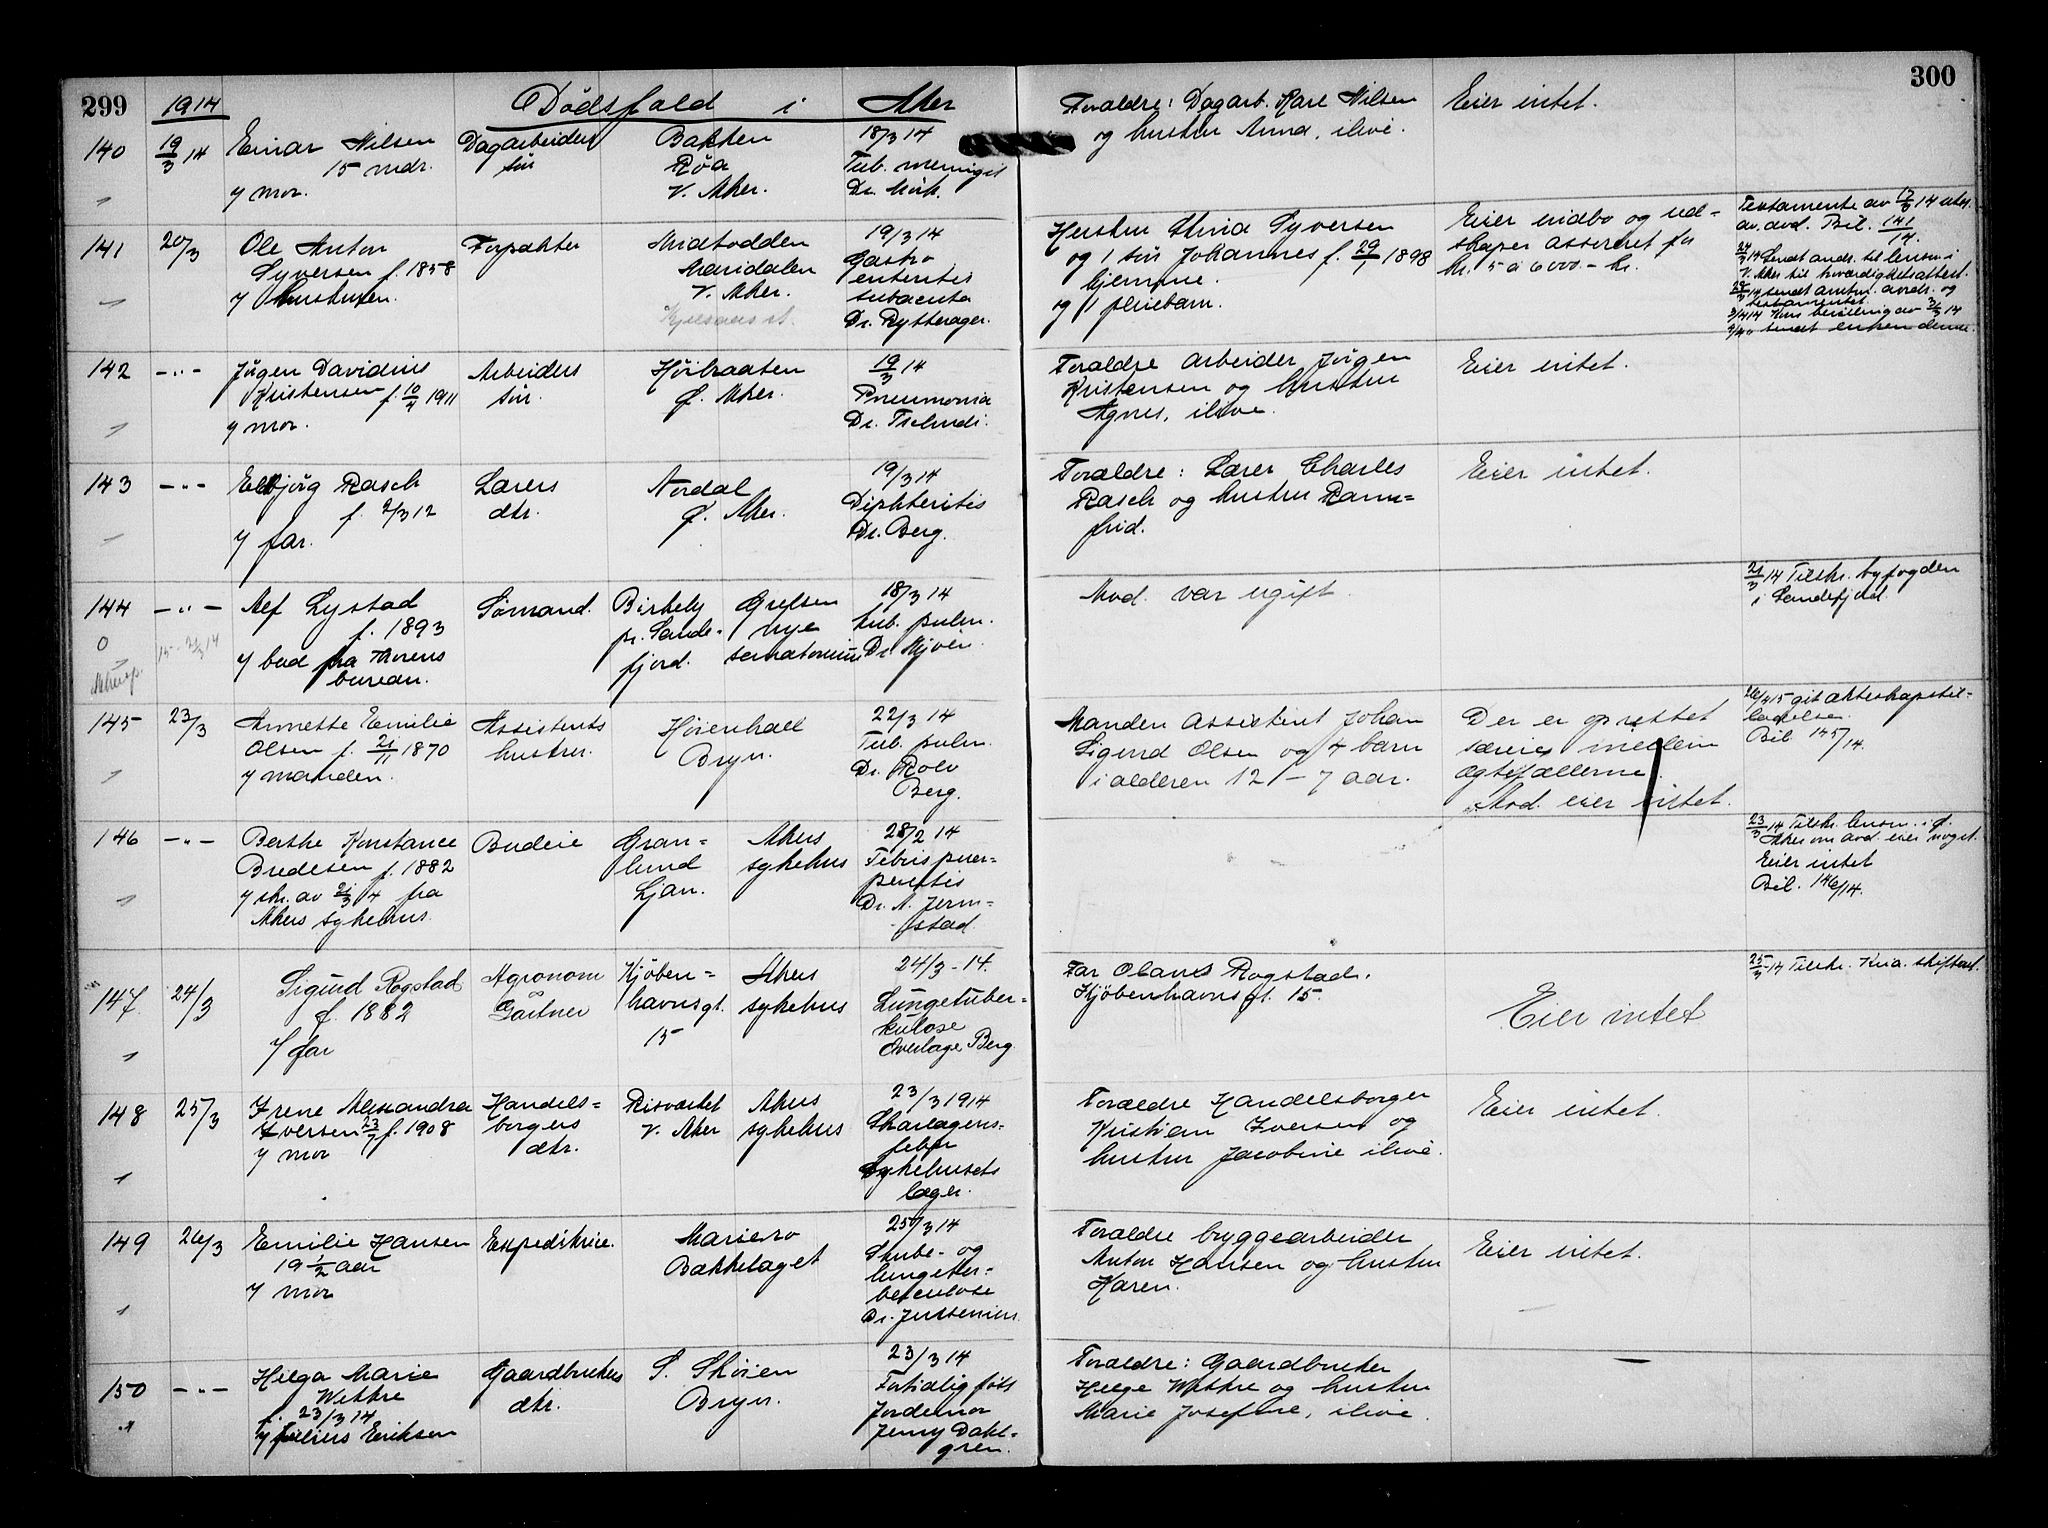 299
1914
Dödsfald i Aker
300
140
19/3 14
Einar Nilsen
15 mdr.
7 mor.
Dagarbeiders
sön
Bakken
Röa
V. Aker.
18/3 14
Tub. meningit
Dr. Mörk.
Foraldre: Dagarb. Karl Nilsen
og hustru Anna, ilive.
Eier intet.
141
20/3
Ole Anton
Syversen f. 1858
7 hustruen.
Forpakter
Midtodden
Maridalen
V. Aker.
Kjelsaas st.
19/3 14
Gastro
enteritis
subacuta
Dr. Rytterager.
Hustru Stina Syversen
og 1 sön Johannes f. 29/1 1898
hjemme
og 1 pleiebarn.
Eier indbo og red-
skaper assureret for
kr. 5 a 6000.- kr.
Testamente av 17/3 14 utst.
av avd. Bil. 141/14.
24/3 14 Sendt andr. til lensm. i
V. Aker til værdighetsattest.
28/3 14 sendt amtm. andr. og
testamentet.
3/4 14 Kons bevilling av 31/3 14
3/4 " sendt enken denne.
142
-"-
Jörgen Davidius
Kristensen f. 10/4 1911
7 mor.
Arbeiders
sön.
Höibraaten
Ö. Aker.
19/3 14
Pneumonia
Dr. Tschudi.
Foraldre arbeider Jörgen
Kristensen og hustru
Agnes, ilive.
Eier intet.
143
-"-
Elbjörg Rasch
f. 2/3 12
7 far.
Lærers
dtr.
Nordal
Ö. Aker.
19/3 14
Diphteritis
Dr. Berg.
Forældre: Lærer Charles
Rasch og hustru Rann-
frid.
Eier intet.
144
0
Akersp.
-"-
15 - 21/3 14
Alf Lystad
f. 1893
7 bud fra Thorens
bureau.
Sömand.
Birkely
pr. Sande-
fjord.
Grefsen
nye
sanatorium
18/3 14
tub. pulm.
Dr. Mjöen.
Avd. var ugift.
21/3 14 Tilskr. byfogden
i Sandefjord.
145
23/3
Annette Emilie
Olsen f. 21/11 1870
7 manden.
Assistents
hustru.
Höienhall
Bryn.
22/3 14
Tub. pulm.
Dr. Rolv
Berg.
Manden Assistent Johan
Sigurd Olsen og 4 barn
i alderen 12 - 7 aar.
Der er oprettet
særeie mellem
ægtefællerne.
Avd. eier intet.
26/4 15 git ækteskapstil-
ladelse.
Bil 145/14.
146
-"-
Berthe Konstance
Bredesen f. 1882
7 skr. av 21/3 14 fra
Akers sykehus.
Budeie
Gran-
lund
Ljan.
Akers
sykehus
28/2 14
Febris puer-
peralis
Dr. A. Jerm-
stad.
23/3 14 Tilskr. lensm. i Ö.
Aker om avd. eier noget.
Eier intet
Bil. 146/14.
147
24/3
Sigurd Rogstad
f. 1882
7 far
Agronom
Gartner
Kjöben-
havnsgt.
15
Akers
sykehus
24/3 - 14.
Lungetuber-
kulose
Overlæge Berg.
Far Olaus Rogstad.
Kjöbenhavnsgt. 15.
Eier intet
25/3 14 Tilskr. Kra. skifteret.
148
25/3
Irene Alexandra
Iversen 23/7 f. 1908
7 mor
Handels-
borgers
dtr.
Risvartet
V. Aker
Akers
sykehus
23/3 1914
Skarlagens-
feber
Sykehusets
læger.
Forældre Handelsborger
Kristian Iversen og
hustru Jacobine ilive.
Eier intet.
149
26/3
Emilie Hansen
19 1/2 aar
7 mor
Expeditrice.
Mariero
Bækkelaget
25/3 14
Strube- og
lungetu-
berculose
Dr. Jurgensen.
Forældre bryggearbeider
Anton Hansen og hustru
Karen.
Eier intet.
150
-"-
Helga Marie
Wethre
f. 23/3 14
7 Julius Eriksen
Gaardbrukers
dtr.
S. Sköien
Bryn.
23/3 14
Fortidlig födt
Jordemor
Jenny Dahl-
gren.
Foraldre: Gaardbruker
Helge Wethre og hustru
Marie Josefine, ilive.
—